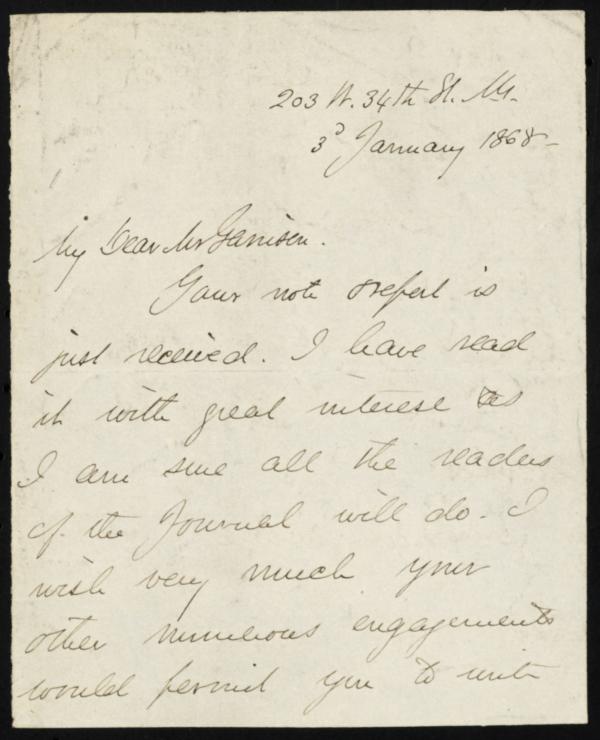 203 W. 34th St. N.Y.
3d January 1868-
My Dear Mr Garrison.
Your note & report is
just received. I have read
it with great interest as
I am sure all the readers
of the Journal will do. I
wish very much your
other numerous engagements
would permit you to write